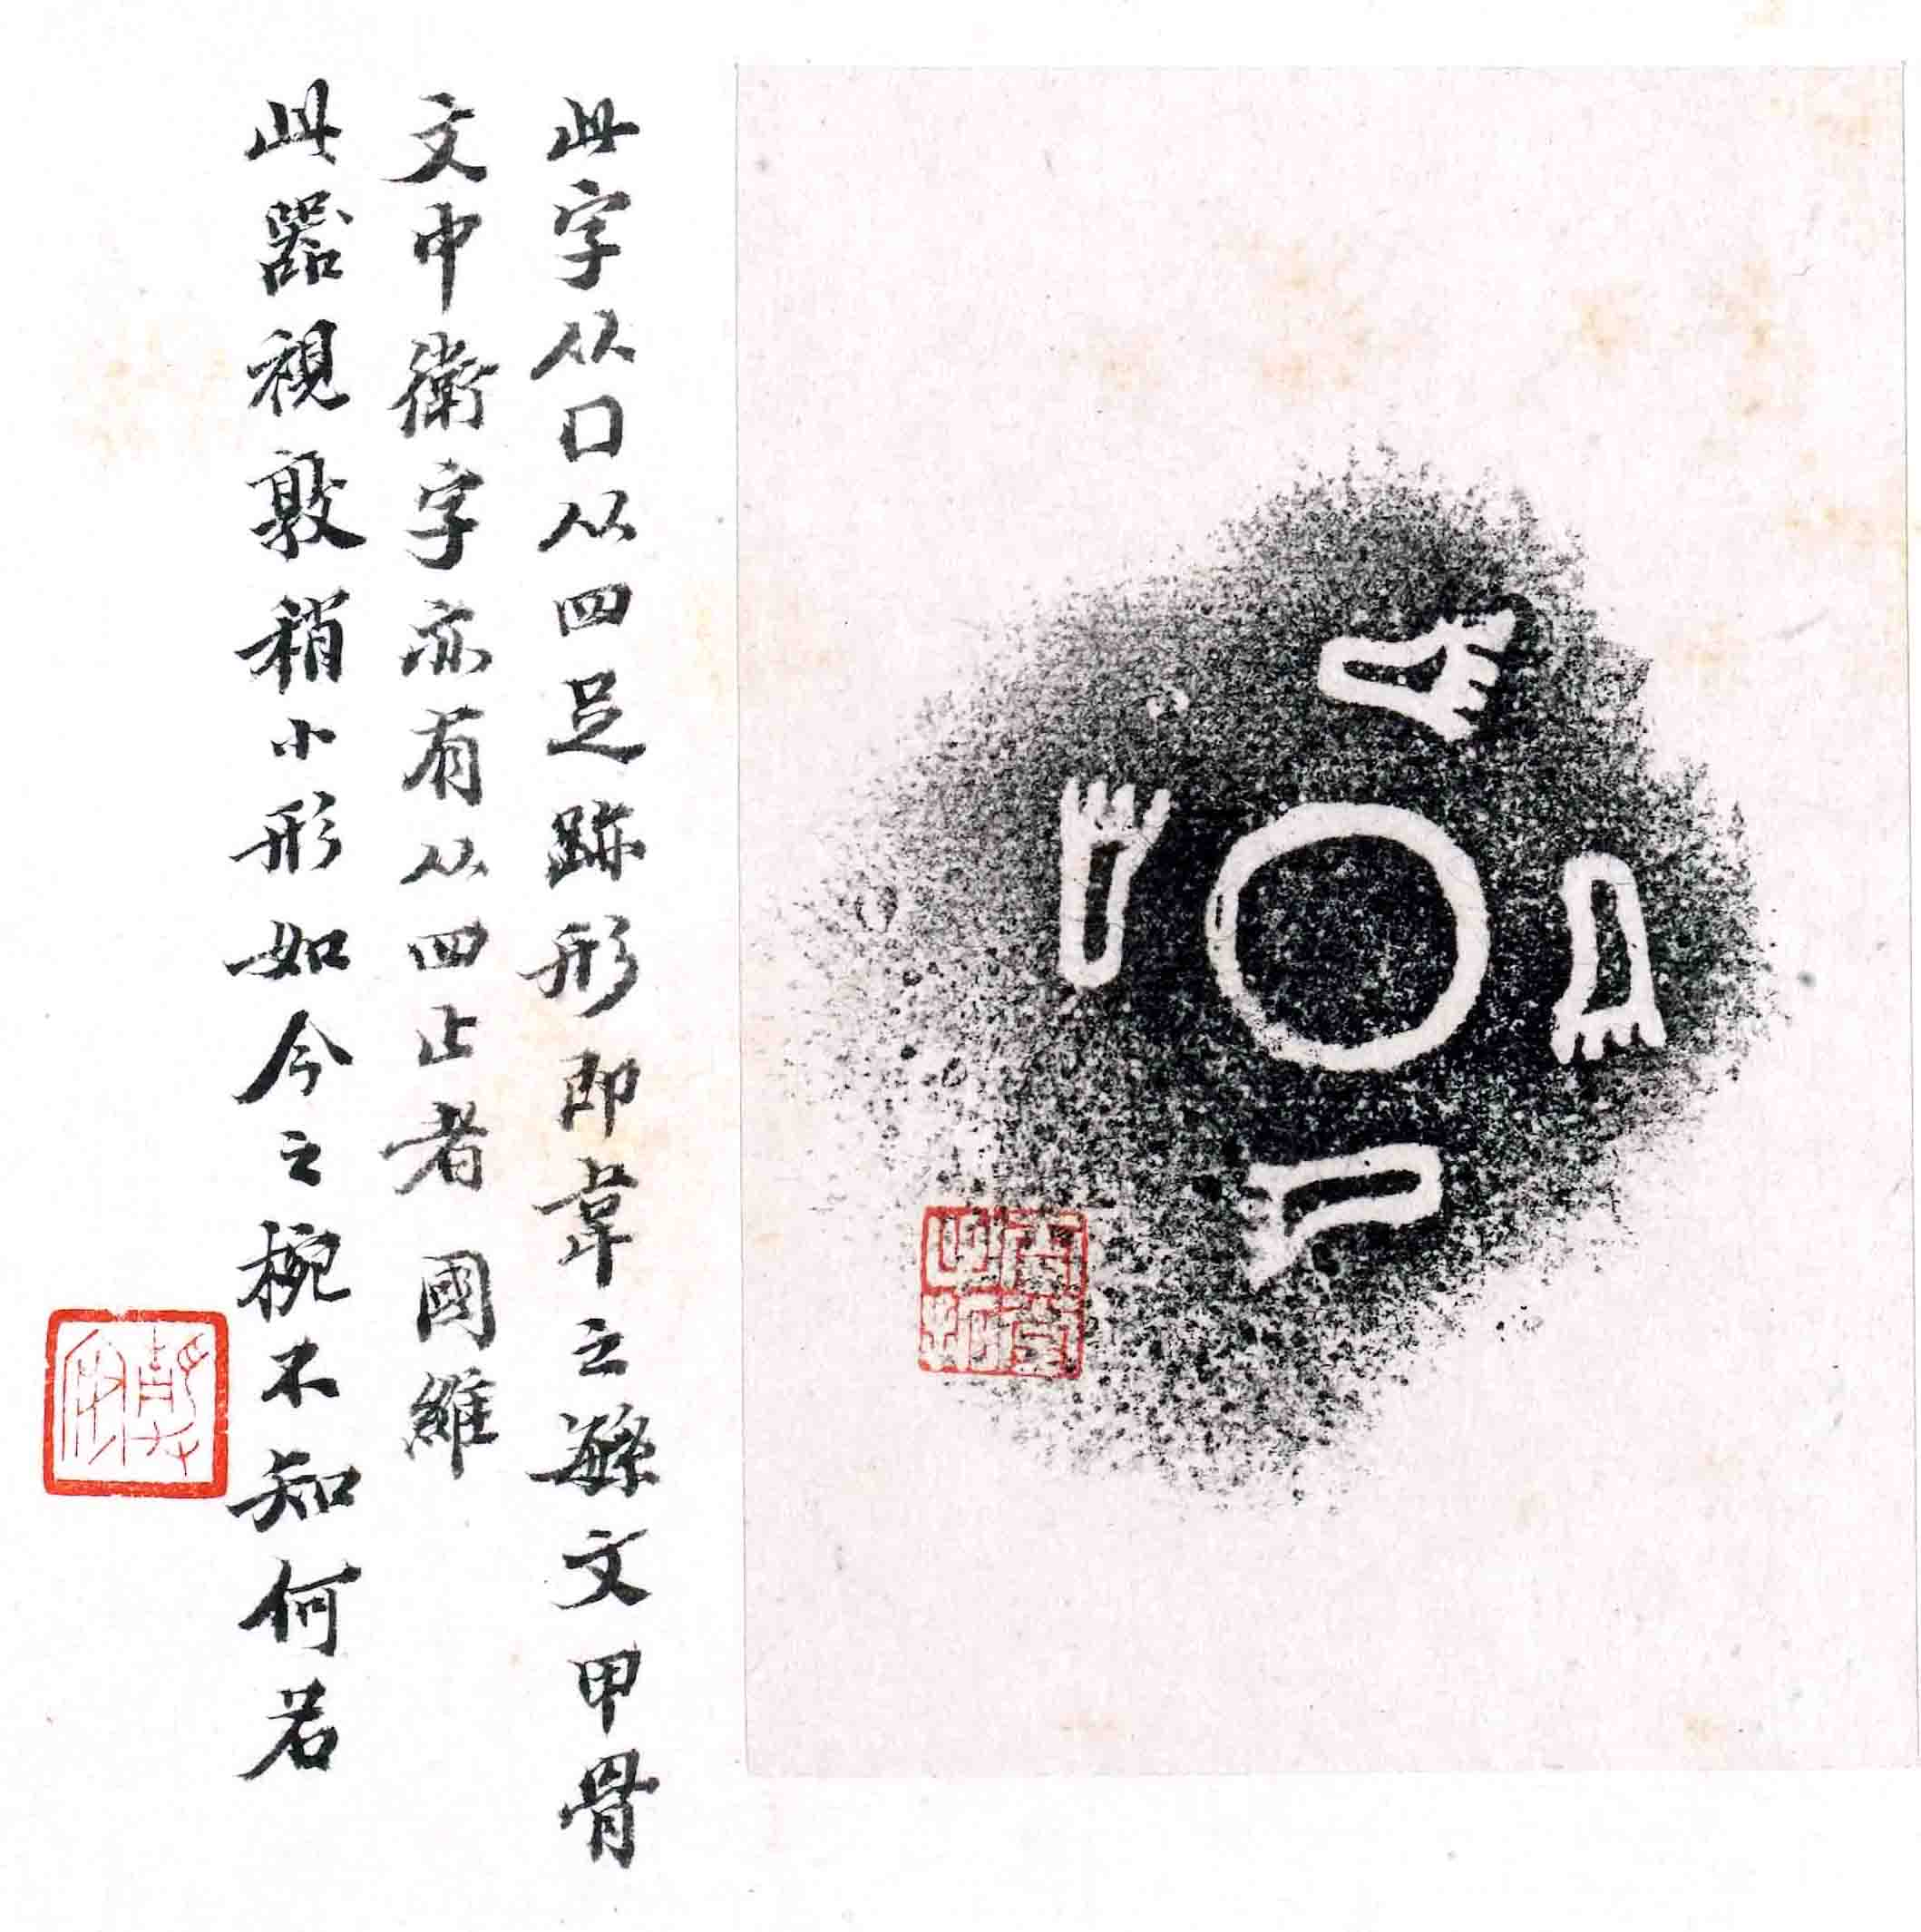 此字从囗从四足跡形即韋之繇文甲骨
文中衛字亦有从四止者 國維
此器視敦稍小形如今之椀不知何若